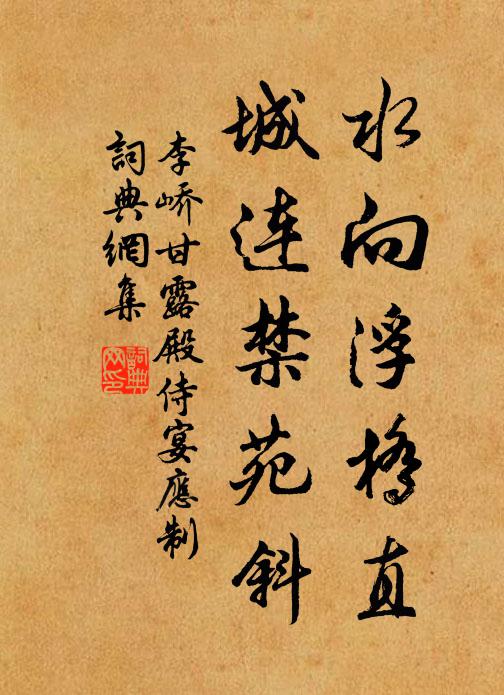 水向浮橋直
城連禁苑斜
李嶠甘露殿侍宴應制
詞典網集
詞典
网印